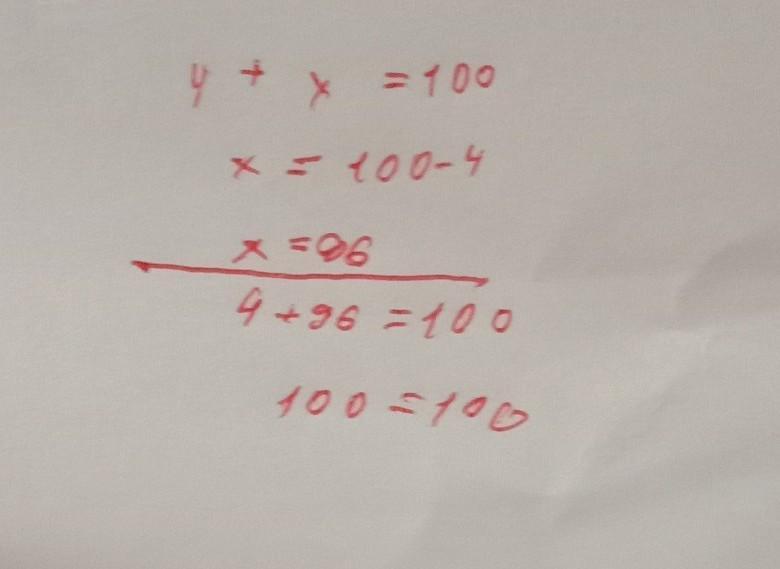 4 + x = 100
x = 100-4
x = 96
4 + 96 = 100
100 = 100